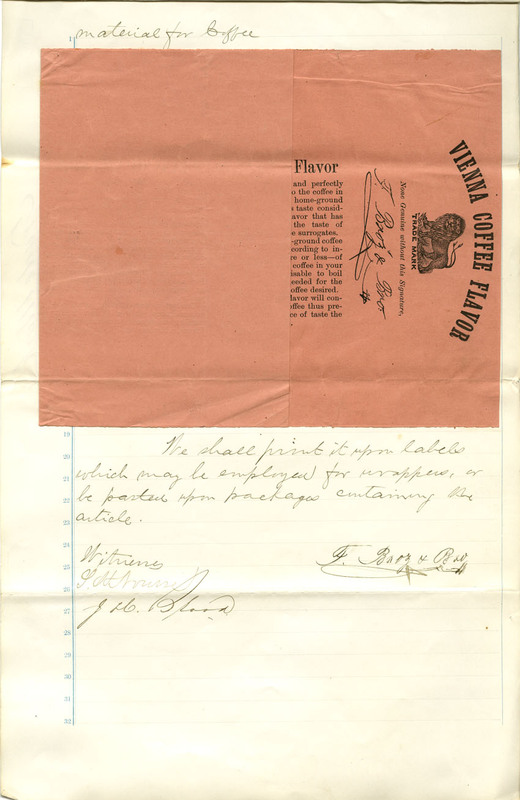 material for Coffee
Flavor
and perfectly
o the coffee in
home-ground
s taste consid-
avor that has
the taste of
e surrogates.
-ground coffee
cording to in-
re or less—of
coffee in your
isable to boil
eeded for the
offee desired.
lavor will con-
offee thus pre-
ce of taste the
VIENNA COFFEE FLAVOR
TRADE MARK
None Genuine without this Signature,
F. Baoz & Bro
19
We shall print it upon labels
20
which may be employed for wrappers, or
21
be pasted upon packages containing the
22
article.
23
24
Witness
F. Baoz & Bro
25
26
J. C. Blood
27
28
29
30
31
32